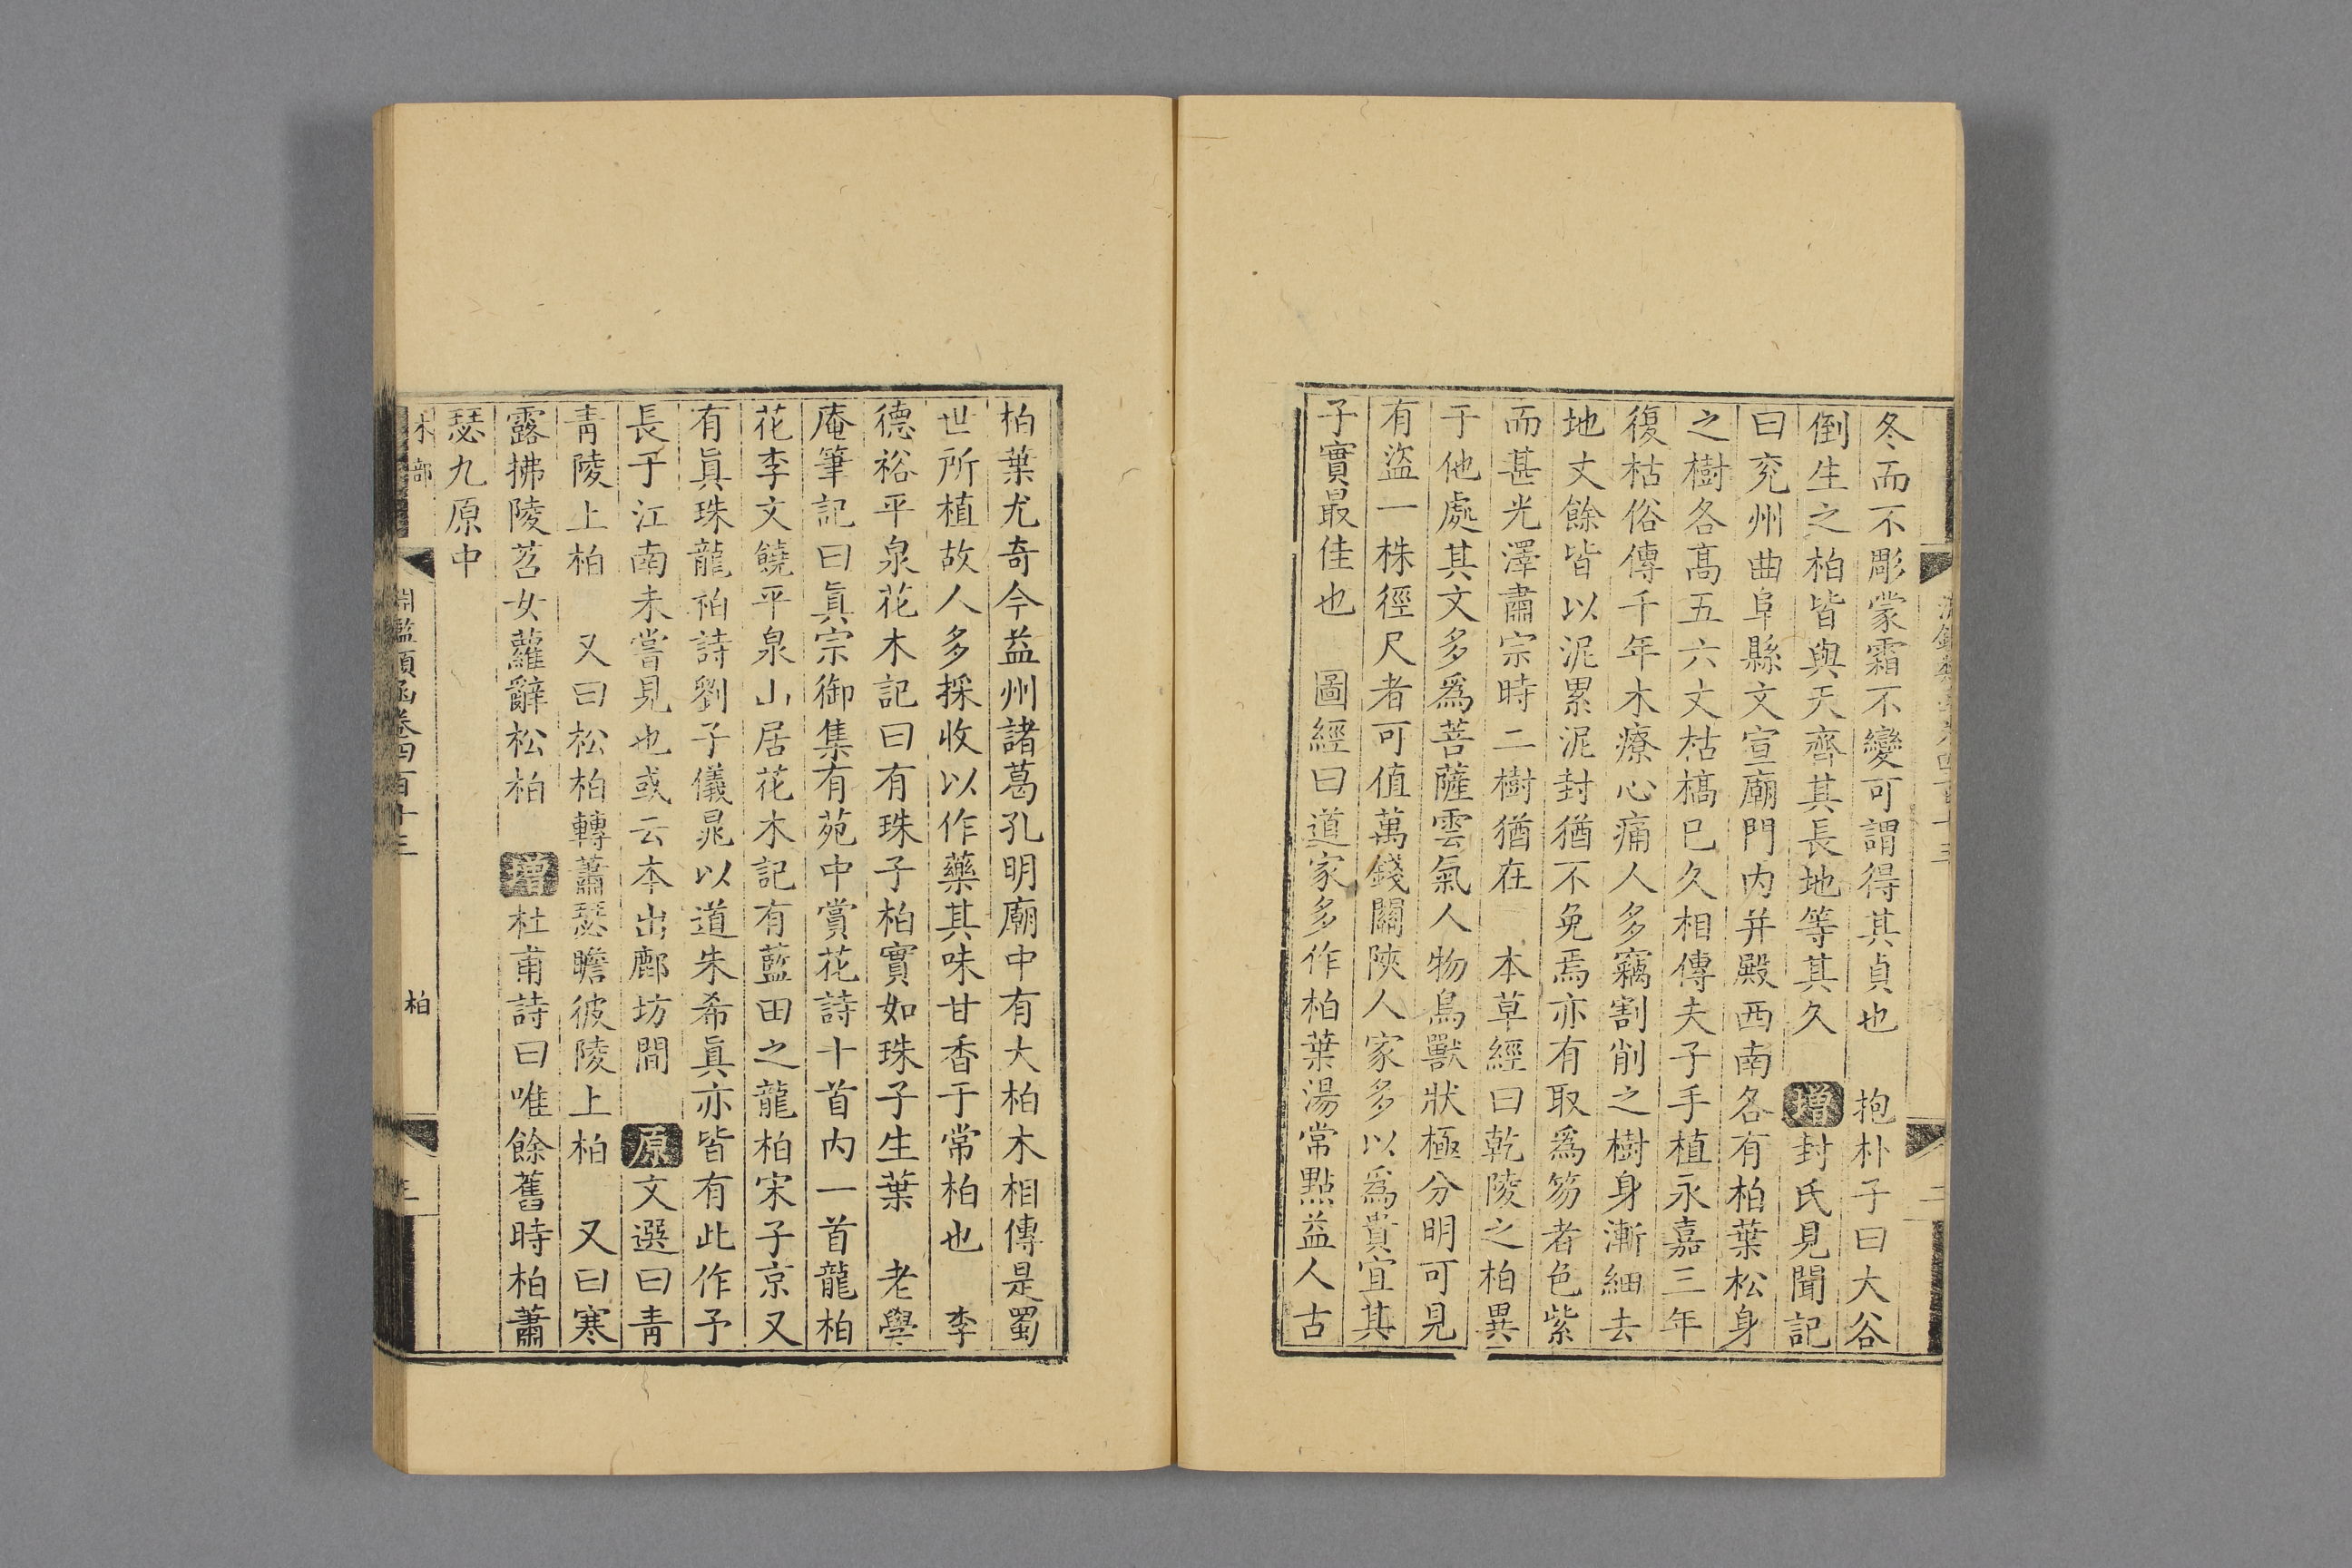 冬而不彫蒙霜不變可謂得其貞也　抱朴子曰大谷
倒生之柏皆與天齊其長地等其久　增封氏見聞記
曰兖州曲阜縣文宣廟門内并殿西南各有柏葉松身
之樹各髙五六丈枯槁巳久相傳夫子手植永嘉三年
復枯俗傳千年木療心痛人多竊割削之樹身漸細去
地丈餘皆以泥累泥封猶不免焉亦有取爲笏者色紫
而甚光澤肅宗時二樹猶在　本草經曰乾陵之柏異
于他處其文多爲菩薩雲氣人物鳥獸狀極分明可見
有盜一株徑尺者可值萬錢關陜人家多以爲貴宜其
子實最佳也　圖經曰道家多作柏葉湯常點益人古
柏葉尤奇今益州諸葛孔明廟中有大柏木相傳是蜀
世所植故人多採收以作藥其味甘香于常柏也　李
德裕平泉花木記曰有珠子柏實如珠子生葉　老學
庵筆記曰眞宗御集有苑中賞花詩十首内一首龍柏
花李文饒平泉山居花木記有藍田之龍柏宋子京又
有眞珠龍柏詩劉子儀晁以道朱希眞亦皆有此作予
長于江南未嘗見也或云本出鄜坊間　原文選曰靑
靑陵上柏　又曰松柏轉蕭瑟瞻彼陵上柏　又曰寒
露拂陵苕女蘿辭松柏　增杜甫詩曰唯餘舊時柏蕭
瑟九原中
木部
淵鑑類函卷四百十三
柏
三